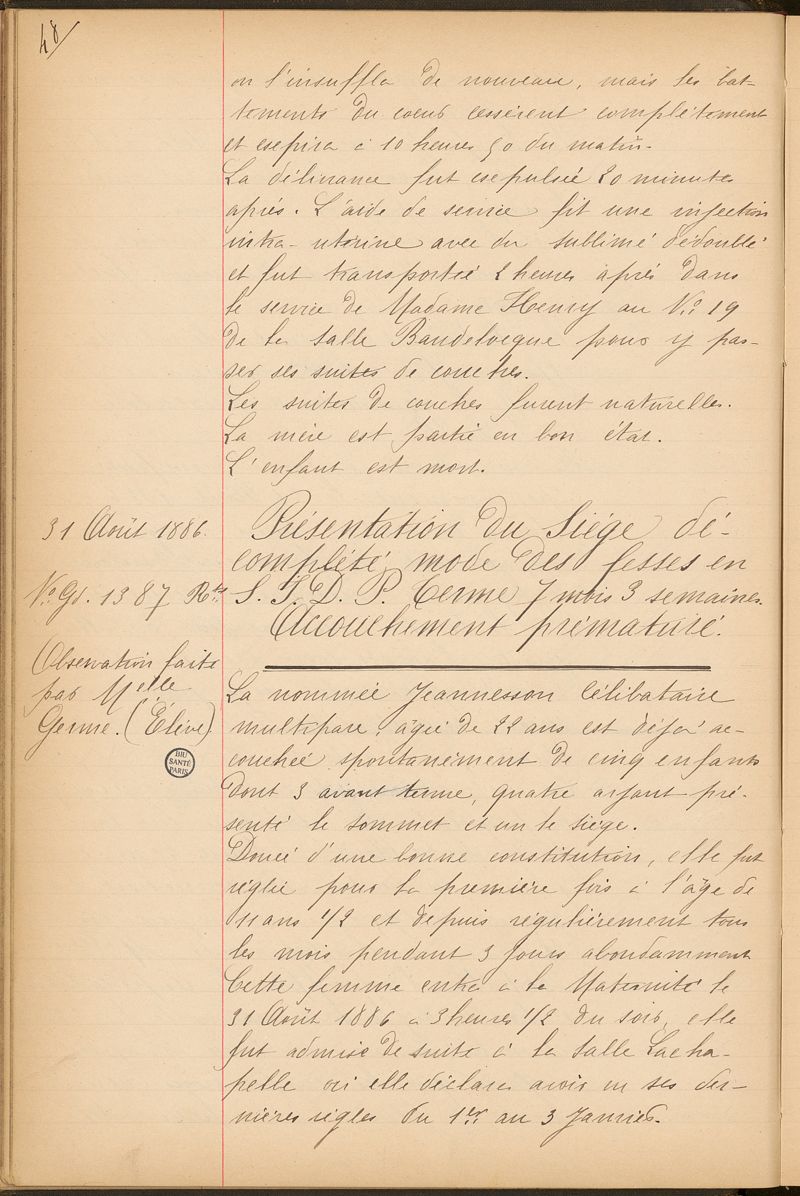 48
on l'insuffla de nouveau, mais les bat-
tements du coeur cessèrent complètement
et expira à 10 heures 50 du matin.
La délivrance fut expulsée 20 minutes
après. L'aide de service fit une injection
intra-utérine avec du sublimé dédoublé
et fut transportée 2 heures après dans
le service de Madame Henry au N.o 19
de la salle Baudelocque pour y pas-
ser ses suites de couches.
Les suites de couches furent naturelles.
La mère est partie en bon état.
L'enfant est mort.
31 Août 1886.
N.o Gd. 1387 R.ts
Observation faite
par Melle
Germe. (Élève)
BIU
SANTÉ
PARIS
Présentation du Siége dé-
complété, mode des fesses en
S. I. D. P. Terme 7 mois 3 semaines.
Accouchement prématuré.
La nommée Jeannesson Célibataire
multipare, âgée de 22 ans est déjà ac-
couchée spontanément de cinq enfants
dont 3 avant terme, quatre ayant pré-
senté le sommet et un le siége.
Douée d'une bonne constitution, elle fut
réglée pour la première fois à l'âge de
11 ans 1/2 et depuis régulièrement tous
les mois pendant 3 jours abondamment
Cette femme entra à la Maternité le
31 Août 1886 à 3 heures 1/2 du soir, elle
fut admise de suite à la salle Lacha-
pelle où elle déclara avoir eu ses der-
nières règles du 1er au 3 Janvier.